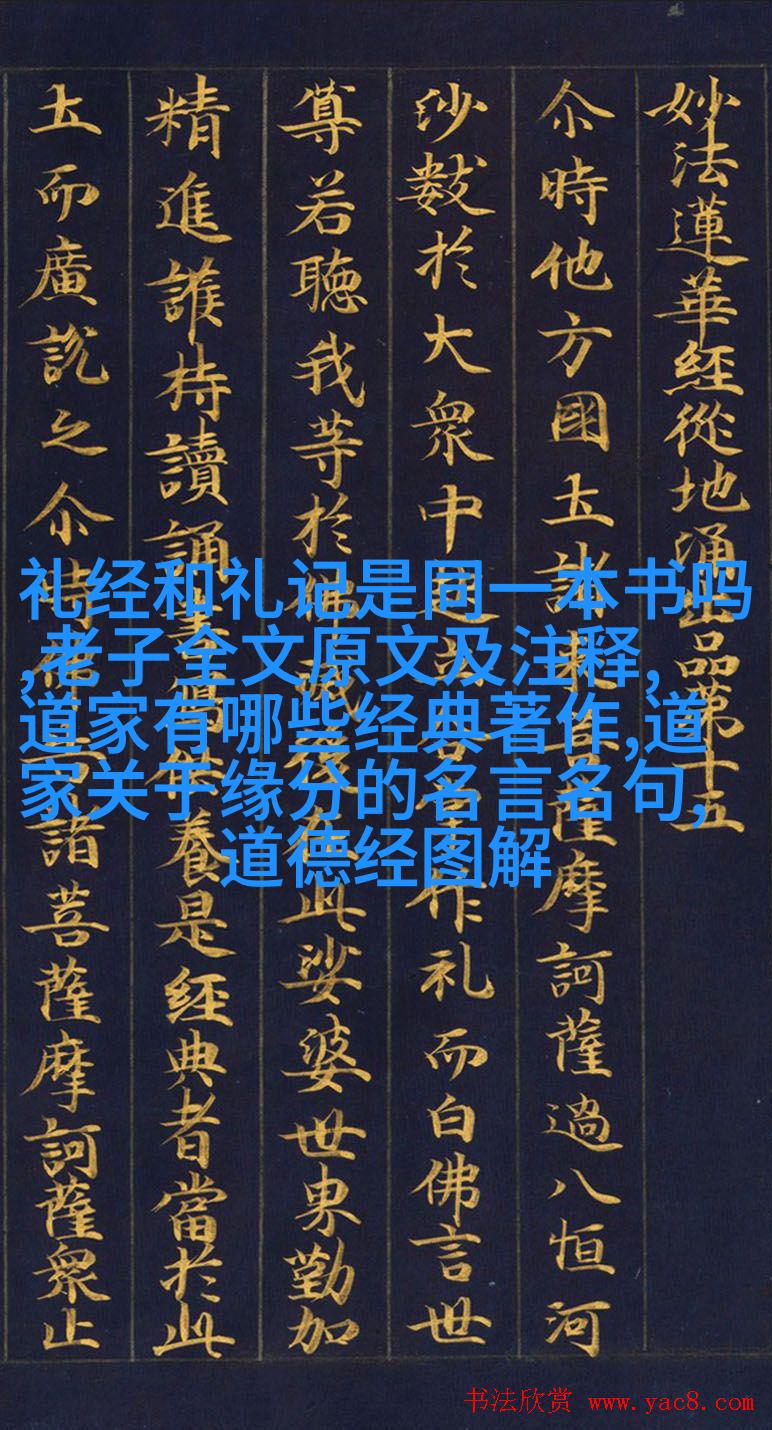 妙法蓮華經從地涌出品第十五
尒時他方國土諸來菩薩摩訶薩過八恒河
沙數於大衆中起作礼而白佛言世
尊若聽我等於佛滅後在此娑婆世界勤加
精進護持讀誦書寫供養是經典者當於此
土而廣説之尒時佛告諸菩薩摩訶薩衆止
礼经和礼记是同一本书吗
,老子全文原文及注释,
道家有哪些经典著作,道
家关于缘分的名言名句,
道德经图解
书法欣赏 www.yac8.com